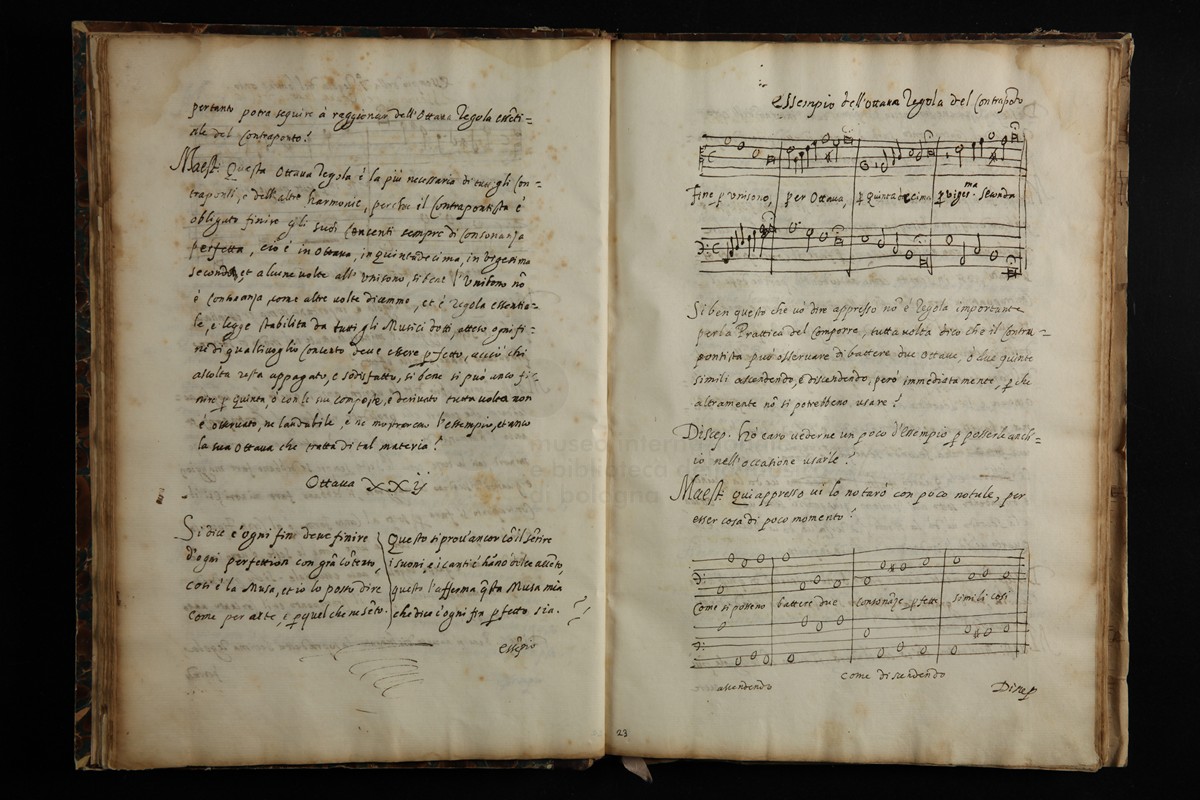 pertanto potra seguire à raggionar dell'Ottava Regola essēti=
ale del Contraponto?
Maest. Questa Ottava regola è la più necessaria di tutti gli Con=
traponti, e dell'altre harmonie, perche il Contrapontista è
obligato finire gli suoi Concenti sempre di Consonanza
perfetta, cioè in Ottava, in quintadecima, in vigesima
seconda, et alcune volte all'unisono, si bene l'unisono nō
è Consonanza, come altre volte dicemmo, et è regola essentia=
le, e legge stabilita da tutti gli Musici dotti, atteso ogni fi=
ne di qualsivoglia Concento deve essere pfetto, acciò chi
ascolta resta appagato, e sodisfatto, si bene si può anco fi=
nire p quinta, ò con le sue composte, e derivate tutta volta non
è osservato, ne laudabile, e ne mostraremo l'essempio, et anco
la sua Ottava che tratta di tal materia?
Ottava XXij
Si dice è ogni fin deve finire
d'ogni perfettion con grā cōtento,
così è la Musa, et io lo posso dire
Come per arte, e p quel che ne sēto.
Questo si prov'ancor cō il sētire
i suoni, e i canti c'hāno dolce accēto,
questo l'afferma q̄sta Musa mia
che dice i ogni fin pfetto sia.
essēpio
Essempio dell'Ottava regola del Contrapōto
fine p unisono, per Ottava, p quintadecima p viges.ma seconda
Si ben questo che vo dire appresso nō è Regola importante
per la Prattica del Comporre, tutta volta dico che il Contra=
pontista può osservare di battere due Ottave, ò due quinte
simili ascendendo, e discendendo, però immediatamente, p che
altramente nō si potrebbeno usare?
Discep. hò caro vederne un poco d'essempio p posserle anch=
io nell'occasione usarle?
Maest. qui appresso vi lo notarò con poco notule, per
esser cosa di poco momento?
Come si posseno battere due consonanze pfette simili così
ascendendo come discendendo
Discep
23
museo inter
e biblioteca d
di bologna